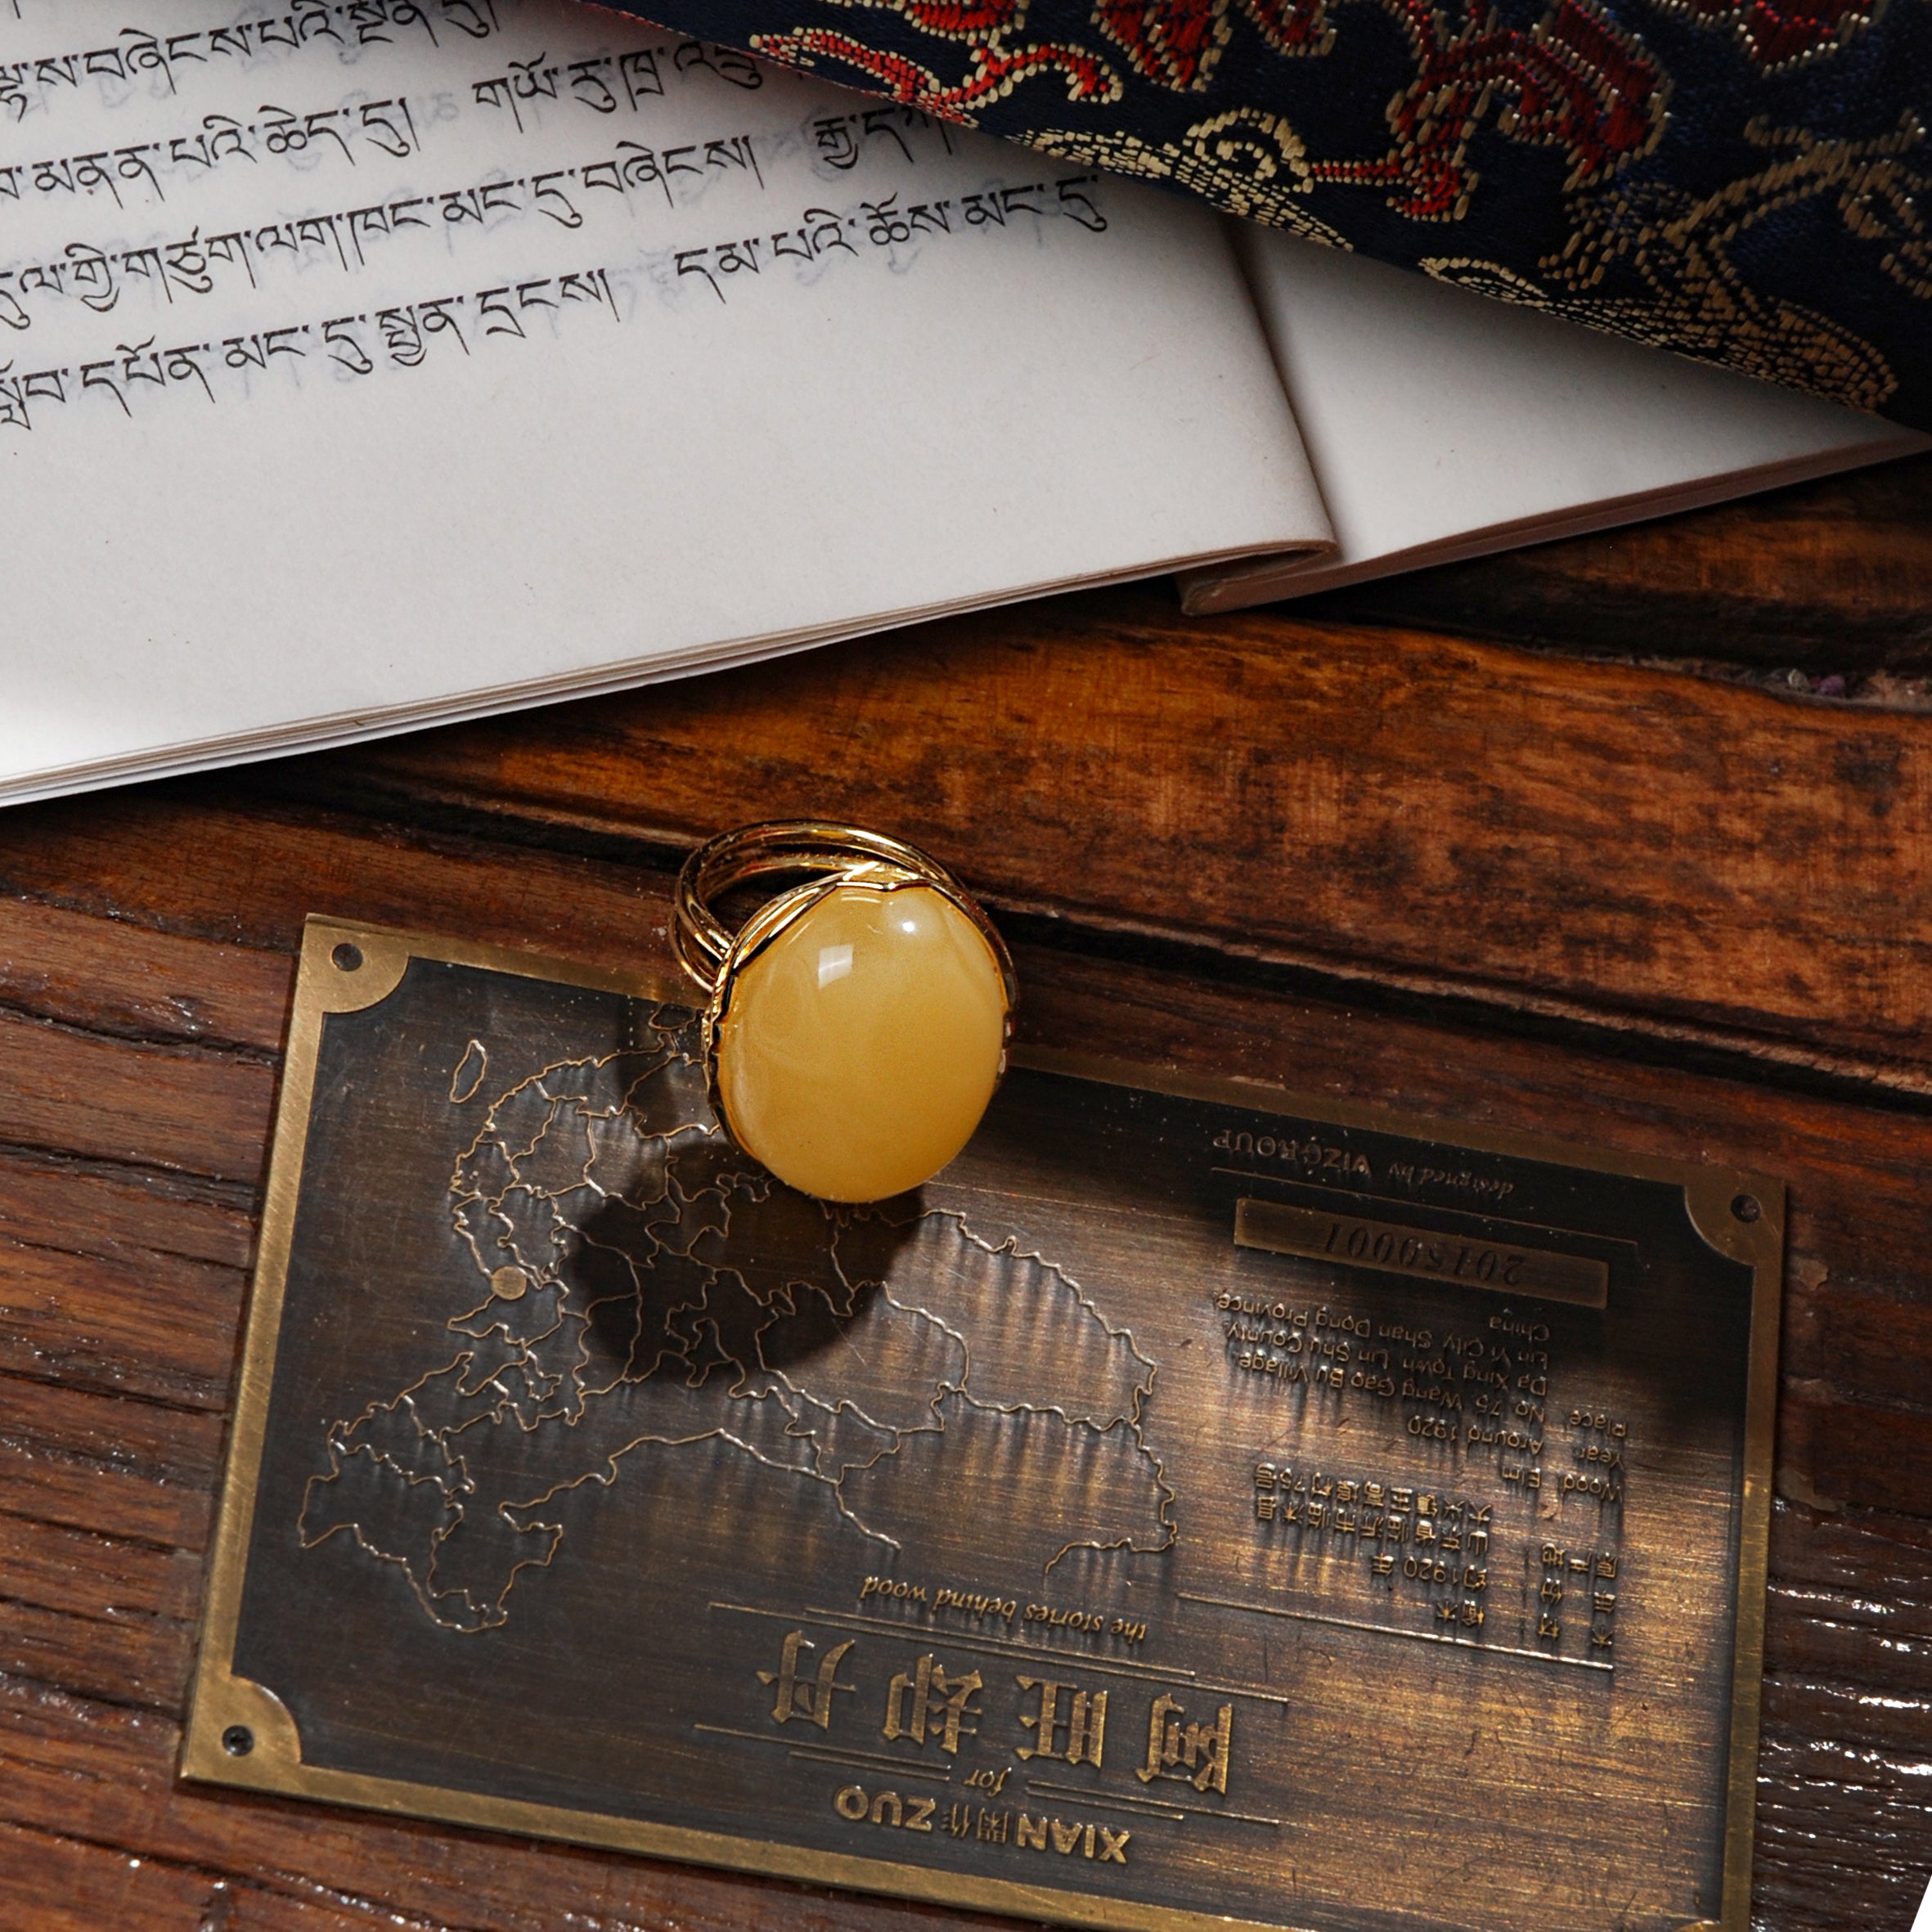 སྟ་ས་བཞེངས་པའི་སྔོན་དུ།
མནན་པའི་ཆེད་དུ། གཡོ་རུ་ཁྲ་འདྲུ
དུལ་གྱི་གཙུག་ལག་ཁང་མང་དུ་བཞེངས། རྒྱ་དཀ
སློབ་དཔོན་མང་དུ་སྤྱན་དྲངས། དམ་པའི་ཆོས་མང་དུ་
XIAN 閑作 ZUO
for
阿旺劲丹
the stories behind wood
木 种 榆木
年 份 约1920 年
原产地 山东省临沂市临沭县
大兴镇王高埠村75号
Wood Elm
Year Around 1920
Place No 75. Wang Gao Bu Village,
Da Xing Town, Lin Shu County,
Lin Yi City, Shan Dong Province,
China
20150001
designed by VIZGROUP